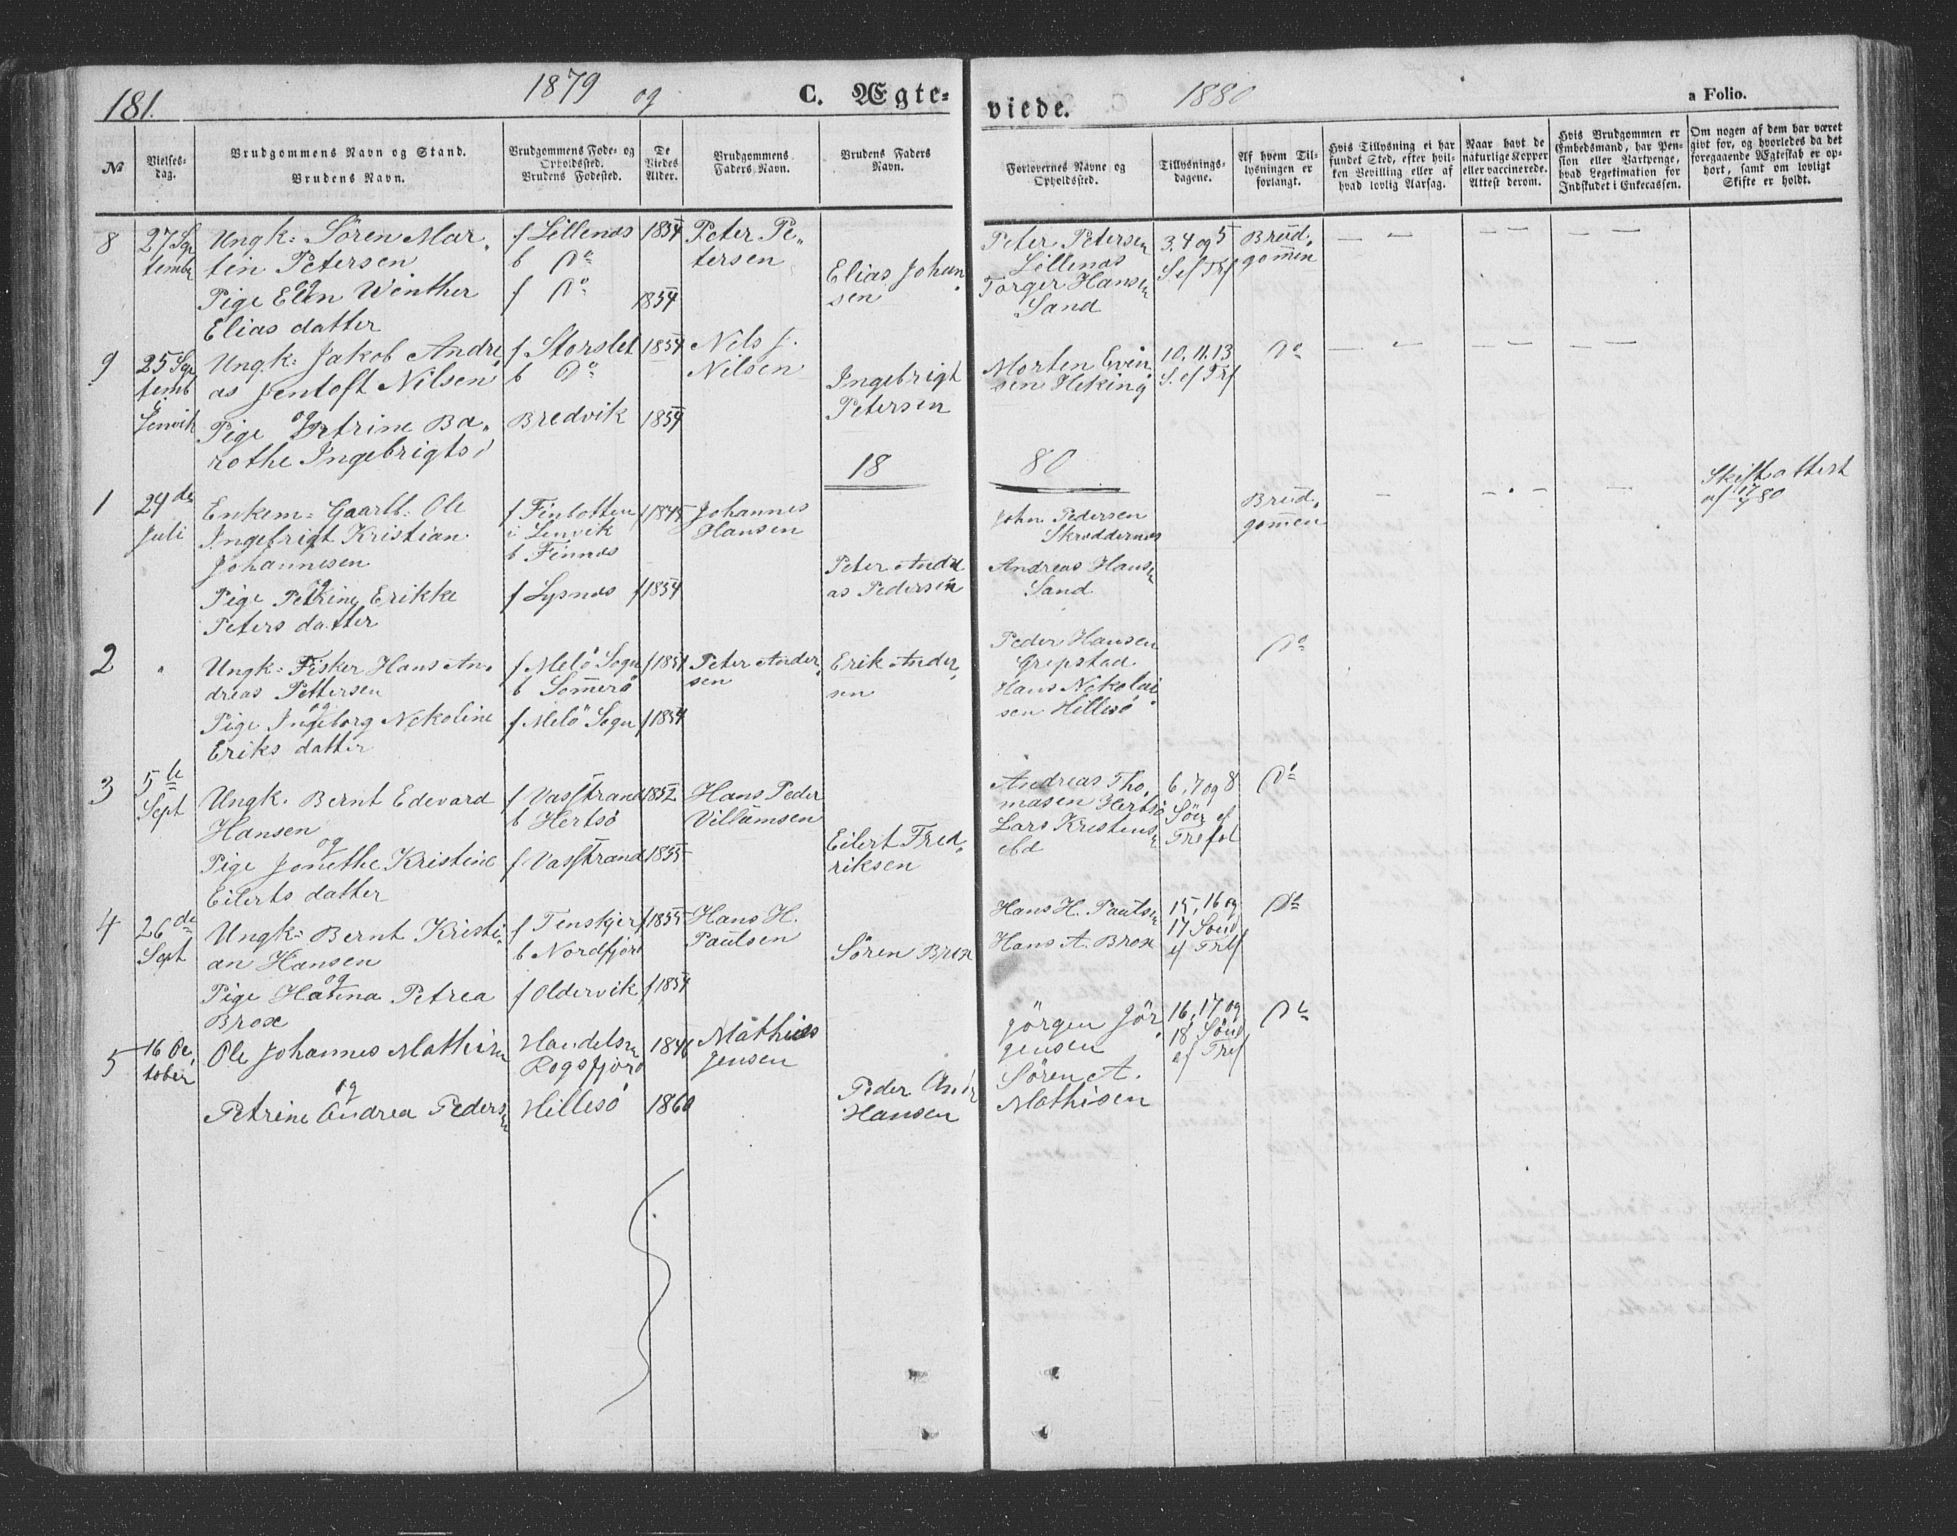 181.
1879 og
C. Ægte-
viede.
1880
a Folio.
No
Vielses-
dag.
Brudgommens Navn og Stand.
Brudens Navn.
Brudgommens Føde- og
Opholdssted.
Brudens Fødested.
De
Viedes
Alder.
Brudgommens
Faders Navn.
Brudens Faders
Navn.
Forlovernes Navne og
Opholdssted.
Tillysnings-
dagene.
Af hvem Til-
lysningen er
forlangt.
Hvis Tillysning ei har
fundet Sted, efter hvil-
ken Bevilling eller af
hvad lovlig Aarsag.
Naar havt de
naturlige Kopper
eller vaccinerede.
Attest derom.
Hvis Brudgommen er
Embedsmand, har Pen-
sion eller Vartpenge,
hvad Legitimation for
Indskudet i Enkecassen.
Om nogen af dem har været
givt for, og hvorledes da det
foregaaende Ægteskab er op-
hørt, samt om lovligt
Skifte er holdt.
8
27 Sep
tembr
Ungk: Sören Mar-
tin Petersen
og
Pige Elen Winther
Elias datter
f Lillenes
b Do
f Do
1854
1854
Peter Pe-
tersen
Elias Johan-
sen
Peter Petersen
Lillenes
Torger Hansen
Sand
3. 4 og 5
S. ef Trf
Brud-
gommen
9
25 Sep
temb
i
Lenvik
Ungk: Jakob Andre
as Jentoft Nilsen
og
Pige Petrine Ba-
rothe Ingebrigts
f Storslet
b Do
Bredvik
1854
1859
Nils J.
Nilsen
Ingebrigt
Petersen
Morten Even
sen Heking
10. 11. 13
S. ef Trf
Do
18 80
1
24 de
Juli
Enkem: Gaarbr: Ole
Ingebrigt Kristian
Johannesen
og
Pige Petrine Erikke
Peters datter
f Finlotten
i Lenvik
b Finnes
f Lysnes
f 1845
f 1854
Johannes
Hansen
Peter Andre
as Pedersen
John Pedersen
Skreddernes
Andreas Hansen
Sand
Brud-
gommen
Skifteattest
af 17/7 80
2
"
Ungk: Fisker Hans An-
dreas Pettersen
og
Pige Ingeborg Nekoline
Eriks datter
f Melö Sogn
b Sommerö
f Melö Sogn
f 1851
f 1854
Peter Ander-
sen
Erik Ander-
sen
Peder Hansen
Grepstad
Hans Nekolai
sen Hillesö
Do
3
5 te
Sept
Ungk. Bernt Edevard
Hansen
og
Pige Jonethe Kristine
Eilerts datter
f Vasstrand
b Hertsö
f Vasstrand
1852
1855
Hans Peder
Villumsen
Eilert Fred-
riksen
Andreas Tho-
masen Hertsö
Lars Kristens
ebd
6, 7 og 8
Sön ef
Trefol
Do
4
26 de
Sept
Ungk: Bernt Kristi-
an Hansen
og
Pige Hanna Petrea
Brox
f Tenskjer
b Nordfjord
f Oldervik
f 1855
f 1854
Hans H.
Paulsen
Sören Brox
Hans H. Paulsen
Hans A. Brox
15, 16 og
17 Sönd
ef Tref
Do
5
16 Oc-
tober
Ole Johannes Mathisen
og
Petrine Andrea Pedersen
Handelsm
Rogsfjord
Hillesö
1846
1860
Mathias
Jensen
Peder Andr
Hansen
Jörgen Jör-
gensen
Sören A.
Mathisen
16, 17 og
18 Sönd
ef Tref
Do